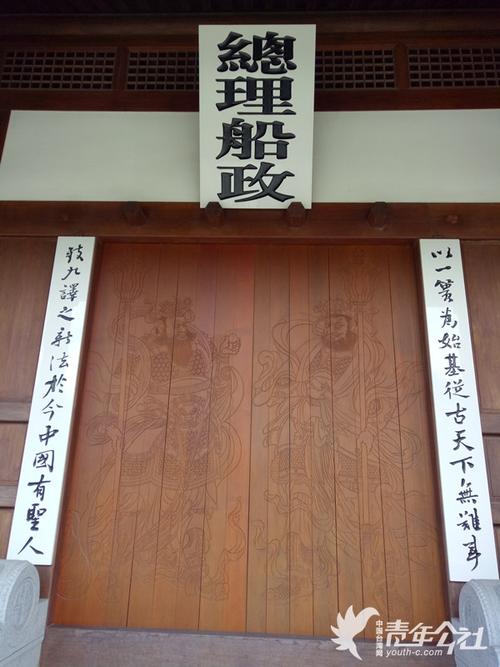 總理船政
以一簣為始基從古天下無難事
致九譯之新法於今中國有聖人
中国台湾网
青年公社
youth-c.com